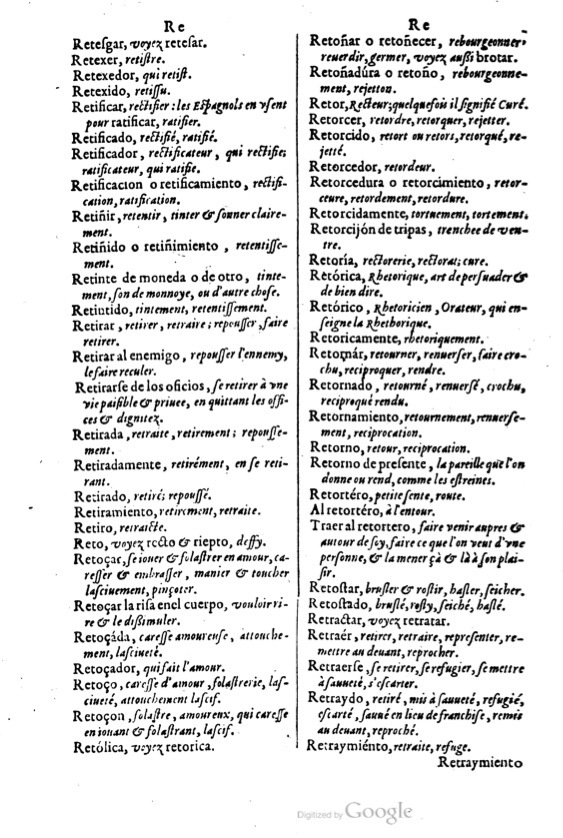 Re
Retesgar, voyez retesar.
Retexer, retistre.
Retexedor, qui retist.
Retexido, retissu.
Retificar, rectifier: les Espagnols en vsent
pour ratificar, ratifier.
Retificado, rectifié, ratifié.
Retificador, rectificateur, qui rectifie;
ratificateur, qui ratifie.
Retificacion o retificamiento, rectifi-
cation, ratification.
Retiñir, retentir, tinter & sonner claire-
ment.
Retiñido o retiñimiento, retentisse-
ment.
Retinte de moneda o de otro, tinte-
ment, son de monnoye, ou d'autre chose.
Retintido, tintement, retentissement.
Retirar, retirer, retraire; repousser, faire
retirer.
Retirar al enemigo, repousser l'ennemy,
le faire reculer.
Retirarse de los oficios, se retirer à vne
vie paisible & priuee, en quittant les offi-
ces & dignitez.
Retirada, retraite, retirement; repousse-
ment.
Retiradamente, retirément, en se reti-
rant.
Retirado, retiré; repoussé.
Retiramiento, retirement, retraite.
Retiro, retraicte.
Reto, voyez recto & riepto, deffy.
Retoçar, se iouer & folastrer en amour, ca-
resser & embrasser, manier & toucher
lasciuement, pinçoter.
Retoçar la risa enel cuerpo, vouloir ri-
re & le dissimuler.
Retoçáda, caresse amoureuse, attouche-
ment, lasciueté.
Retoçador, qui fait l'amour.
Retoço, caresse d'amour, folastrerie, las-
ciueté, attouchement lascif.
Retoçon, folastre, amoureux, qui caresse
en iouant & folastrant, lascif.
Retólica, voyez retorica.
Re
Retoñar o retoñecer, rebourgeonner
reuerdir, germer, voyez aussi brotar.
Retoñadúra o retoño, rebourgeonne-
ment, rejetton.
Retor, Recteur; quelquefois il signifié Curé.
Retorcer, retordre, retorquer, rejetter.
Retorcido, retort ou retors, retorqué, re-
jetté.
Retorcedor, retordeur.
Retorcedura o retorcimiento, retor-
ceure, retordement, retordure.
Retorcidamente, tortuement, tortement.
Retorcijón de tripas, trenchee de ven-
tre.
Retoría, rectorerie, rectorat; cure.
Retórica, Rhetorique, art de persuader &
de bien dire.
Retórico, Rhetoricien, Orateur, qui en-
seigne la Rhethorique.
Retoricamente, rhetoriquement.
Retornár, retourner, renuerser, faire cro-
chu, reciproquer, rendre.
Retornado, retourné, renuersé, crochu,
reciproqué rendu.
Retornamiento, retournement, renuerse-
ment, reciprocation.
Retorno, retour, reciprocation.
Retorno de presente, la pareille que l'on
donne ou rend, comme les estreines.
Retortéro, petite sente, route.
Al retortéro, à l'entour.
Traer al retortero, faire venir aupres &
autour de soy, faire ce que l'on veut d'vne
personne, & la mener çà & là à son plai-
sir.
Retostar, brusler & rostir, hasler, seicher.
Retostado, bruslé, rosty, seiché, haslé.
Retractar, voyez retratar.
Retraér, retirer, retraire, representer, re-
mettre au deuant, reprocher.
Retraerse, se retirer, se refugier, se mettre
à sauueté, s'escarter.
Retraydo, retiré, mis à sauueté, refugié,
escarté, sauué en lieu de franchise, remis
au deuant, reproché.
Retraymiénto, retraite, refuge.
Retraymiento
Digitized by Google